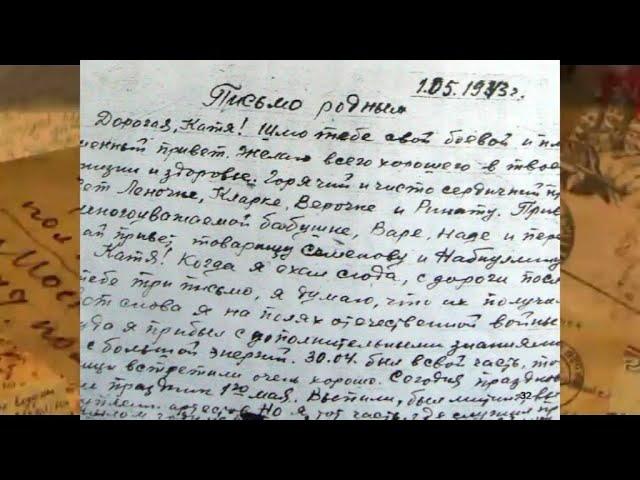 1.05.1943г.
Письмо родным
Дорогая, Катя! Шлю тебе свой боевой и пла
менный привет. Желаю всего хорошего в твое
жизни и здоровье. Горячий и чисто сердечный пр
вет Леночке, Кларке, Верочке и Ринату. Приве
многоуважаемой бабушке, Варе, Наде и пере
ай привет товарищу Семёнову и Набиуллину
Катя! Когда я ехал сюда, с дороги посл
тебе три письмо, я думаю, что их получи
вот снова я на полях отечественной войны
да я прибыл с дополнительными знаниями
с большой энергий. 30.04. был в свой часть, то
ищи встретили очень хорошо. Сегодня празднов
ли праздник 1го мая. Выпили, был митинг, вы
артистов. Но я, тот часть, где служил пр
32
пол
Мос